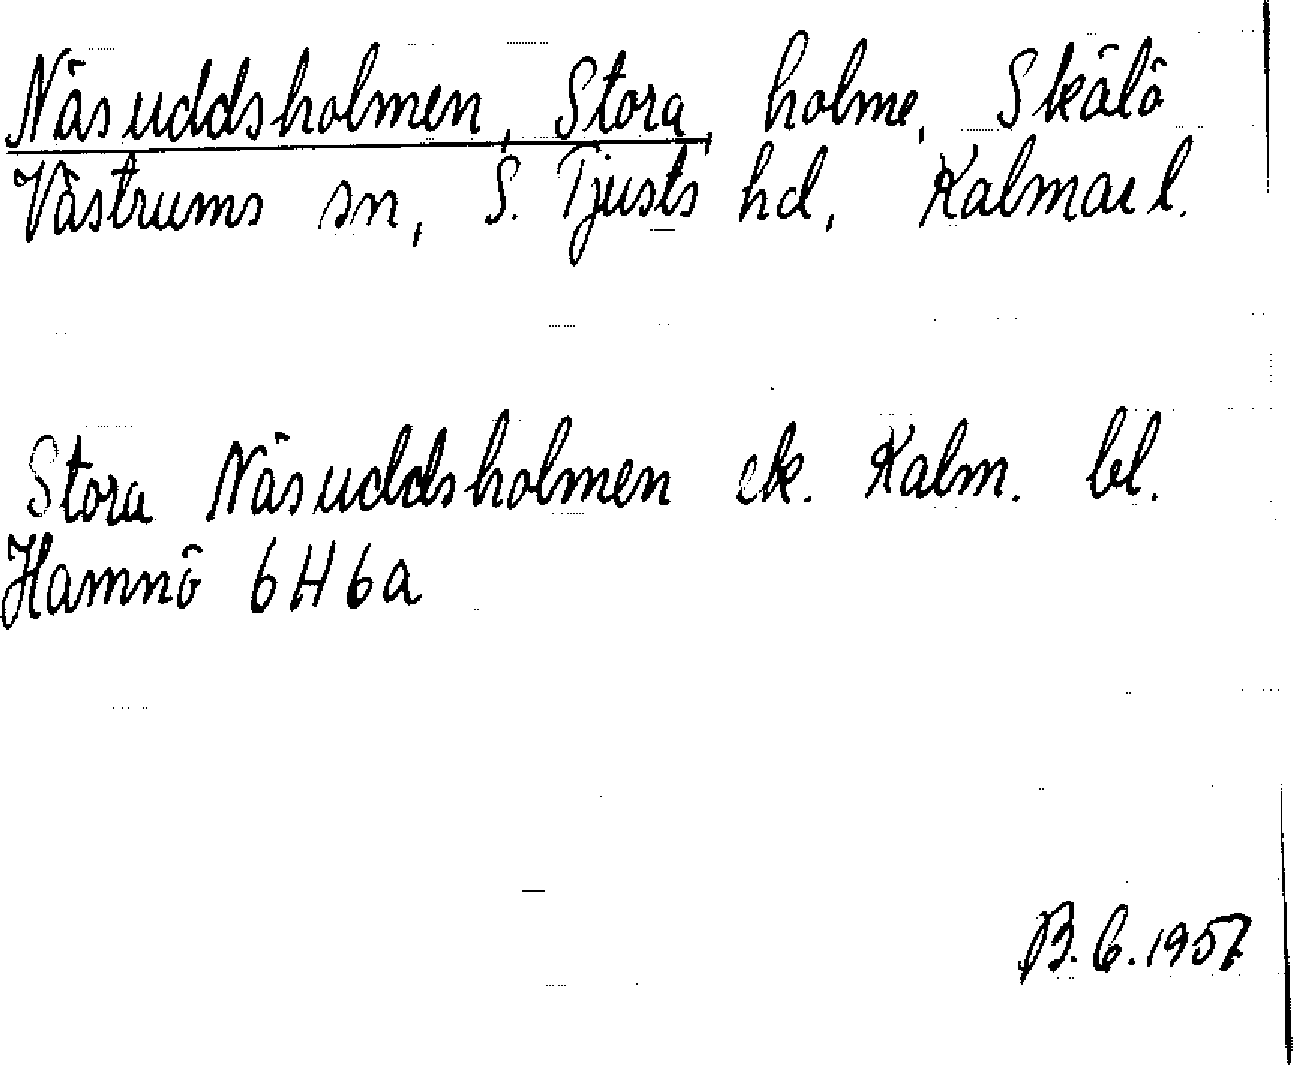 Näsuddsholmen, Stora, holme, Skälö
Västrums sn, S. Tjusts hd, Kalmar l.
Stora Näsuddsholmen ek. Kalm. bl.
Hamnö 6H6a
B. C. 1957